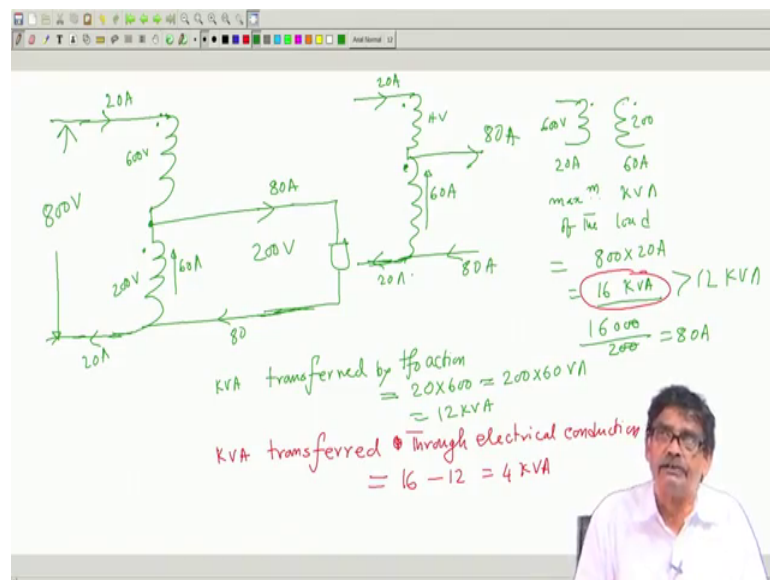 T
Arial Normal 12
20A
600V
800V
80A
200V
200V
60A
80
20A
20A
HV
80A
60A
20A
80A
600V
200
20A
60A
maxm KVA
of The load
= 800x20A
= 16 KVA > 12 KVA
16000
200
= 80A
KVA transferred by tfo action
= 20x600 = 200x60 VA
= 12 KVA
KVA transferred Through electrical conduction
= 16 - 12 = 4 KVA